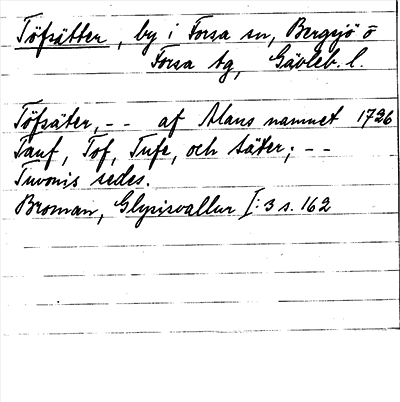 Töfsätter, by i Forsa sn, Bergsjö o
Forsa tg, Gävleb. l.
Töfsäter, - - af Mans namnet 1726
Tauf, Tof, Tufe, och säter; - -
Tuvonis sedes.
Broman, Glysisvallur I:3 s. 162